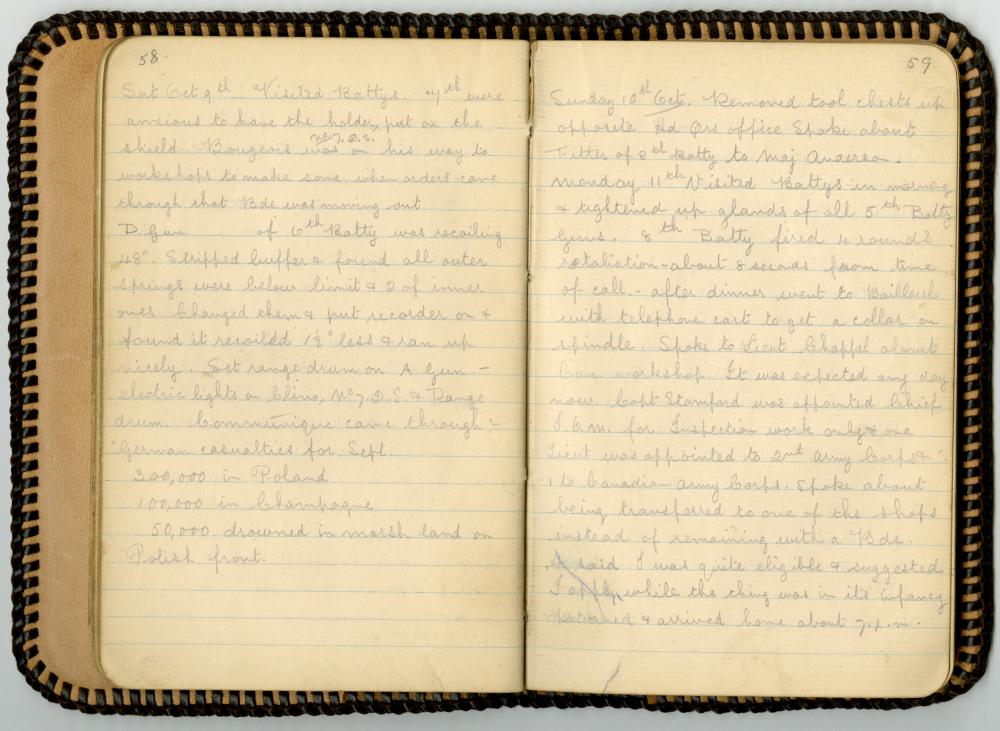 58
Sat Oct 9th Visited Battys. 7th were
anxious to have the holder, put on the
No 7. D.S.
shield. Bourgeois was on his way to
workshops to make some when orders came
through that Bde was moving out
D. Gun of 6th Batty was recoiling
48". Stripped buffer & found all outer
springs were below limit & 2 of inner
ones. Changed them & put recorder on &
found it recoiled 1½" less & ran up
nicely. Set range drum on A Gun. -
electric lights on Clino, No 7. D.S. & Range
drum. Communique came through :-
German casualties for Sept.
300,000 in Poland
100,000 in Champagne
50,000 drowned in marsh land on
Polish front.
59
Sunday 10th Oct. Removed tool chests up
opposite Hd Qrs office Spoke about
Fitter of 8th Batty to Maj Anderson.
Monday 11th Visited Battys in morning
& tightened up glands of all 5th Batty
Guns. 8th Batty fired 4 rounds
retaliation - about 8 seconds from time
of call. - after dinner went to Bailleul
with telephone cart to get a collar on
spindle. Spoke to Lieut Chappel about
Can. workshop. It was expected any day
now. Capt Stamford was appointed Chief
I.O.M. for Inspection work only & one
Lieut was appointed to 2nd Army Corps &
1 to Canadian Army Corps. Spoke about
being transferred to one of the shops
instead of remaining with a Bde.
said I was quite eligible & suggested
I apply while the thing was in its infancy
Returned & arrived home about 7.p.m.